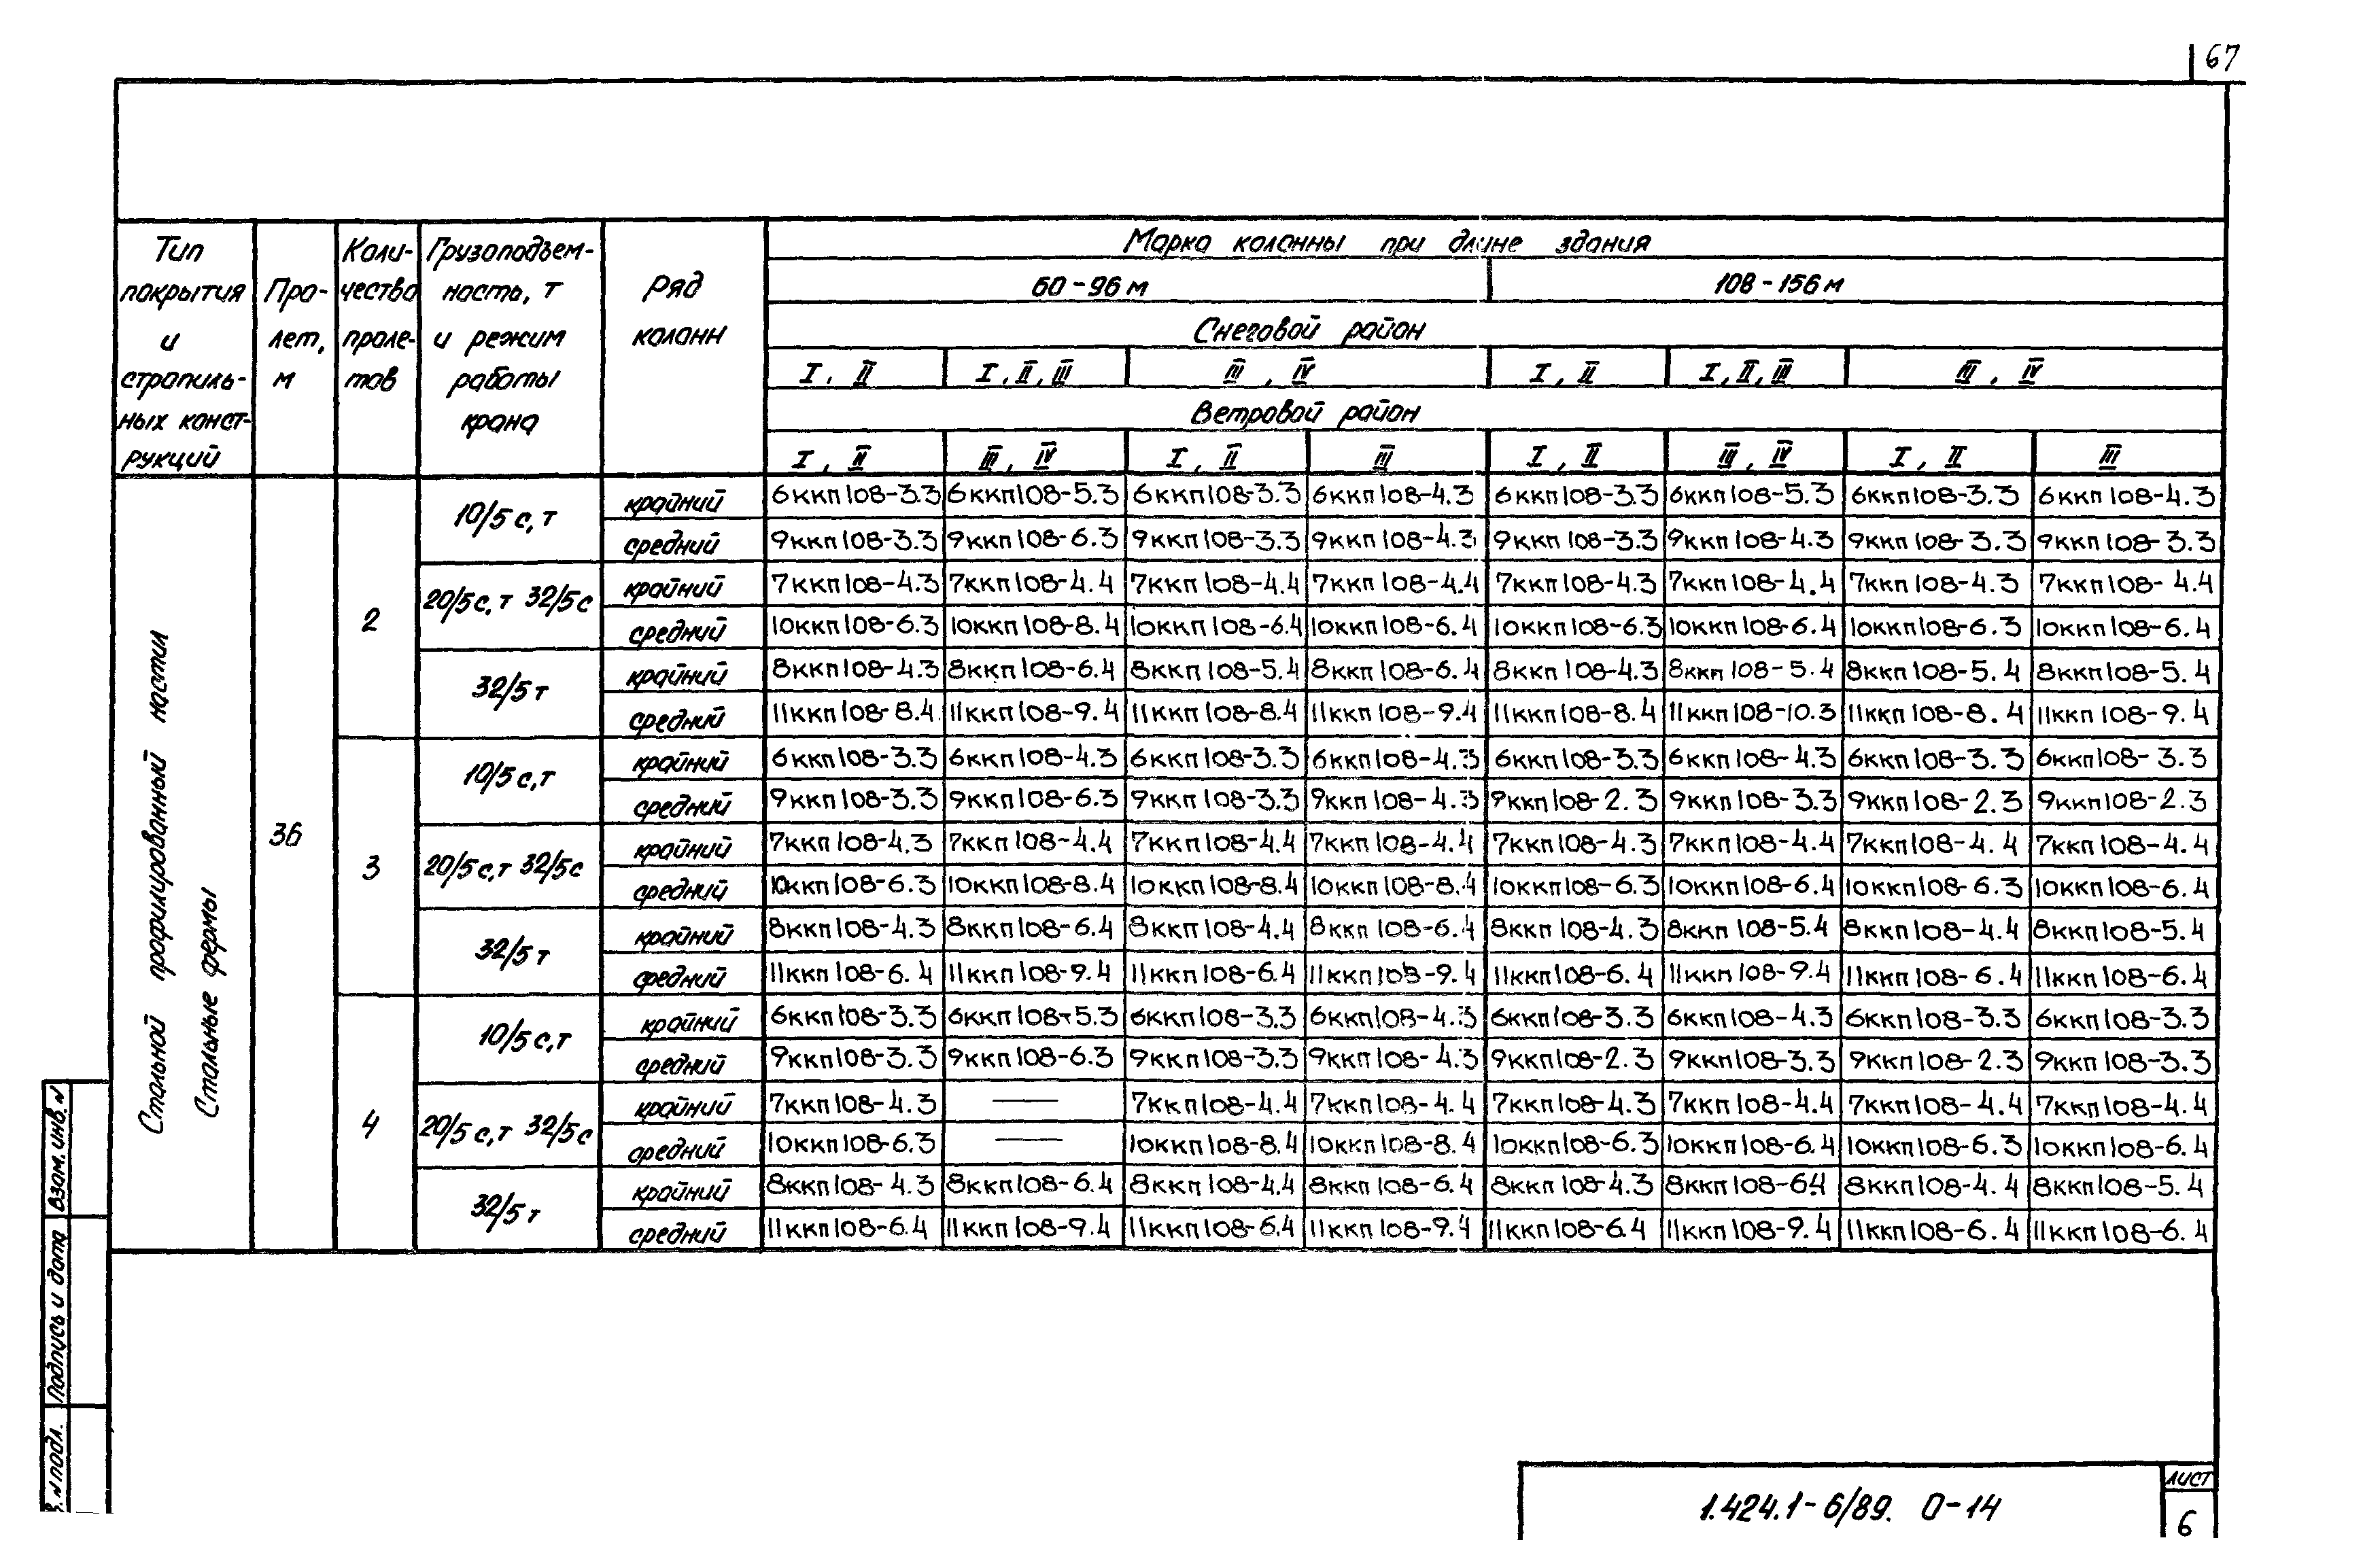 67
Тип покрытия и стропиль- ных конст- рукций
Про- лет, м
Коли- чество проле- тов
Грузоподъем- ность, т и режим работы крана
Ряд колонн
Марка колонны при длине здания
60-96 м 108-156 м
Снеговой район
I, II I, II, III III, IV I, II I, II, III III, IV
Ветровой район
I, II III, IV I, II III I, II III, IV I, II III
Стальной профилированный настил
Стальные фермы
36
2
10/5 с, т
крайний 6ккп108-3.3 6ккп108-5.3 6ккп108-3.3 6ккп108-4.3 6ккп108-3.3 6ккп108-5.3 6ккп108-3.3 6ккп108-4.3
средний 9ккп108-3.3 9ккп108-6.3 9ккп108-3.3 9ккп108-4.3 9ккп108-3.3 9ккп108-4.3 9ккп108-3.3 9ккп108-3.3
20/5 с, т 32/5 с
крайний 7ккп108-4.3 7ккп108-4.4 7ккп108-4.4 7ккп108-4.4 7ккп108-4.3 7ккп108-4.4 7ккп108-4.3 7ккп108-4.4
средний 10ккп108-6.3 10ккп108-8.4 10ккп108-6.4 10ккп108-6.4 10ккп108-6.3 10ккп108-6.4 10ккп108-6.3 10ккп108-6.4
32/5 т
крайний 8ккп108-4.3 8ккп108-6.4 8ккп108-5.4 8ккп108-6.4 8ккп108-4.3 8ккп108-5.4 8ккп108-5.4 8ккп108-5.4
средний 11ккп108-8.4 11ккп108-9.4 11ккп108-8.4 11ккп108-9.4 11ккп108-8.4 11ккп108-10.3 11ккп108-8.4 11ккп108-9.4
3
10/5 с, т
крайний 6ккп108-3.3 6ккп108-4.3 6ккп108-3.3 6ккп108-4.3 6ккп108-3.3 6ккп108-4.3 6ккп108-3.3 6ккп108-3.3
средний 9ккп108-3.3 9ккп108-6.3 9ккп108-3.3 9ккп108-4.3 9ккп108-2.3 9ккп108-3.3 9ккп108-2.3 9ккп108-2.3
20/5 с, т 32/5 с
крайний 7ккп108-4.3 7ккп108-4.4 7ккп108-4.4 7ккп108-4.4 7ккп108-4.3 7ккп108-4.4 7ккп108-4.4 7ккп108-4.4
средний 10ккп108-6.3 10ккп108-8.4 10ккп108-8.4 10ккп108-8.4 10ккп108-6.3 10ккп108-6.4 10ккп108-6.3 10ккп108-6.4
32/5 т
крайний 8ккп108-4.3 8ккп108-6.4 8ккп108-4.4 8ккп108-6.4 8ккп108-4.3 8ккп108-5.4 8ккп108-4.4 8ккп108-5.4
средний 11ккп108-6.4 11ккп108-9.4 11ккп108-6.4 11ккп108-9.4 11ккп108-6.4 11ккп108-9.4 11ккп108-6.4 11ккп108-6.4
4
10/5 с, т
крайний 6ккп108-3.3 6ккп108-5.3 6ккп108-3.3 6ккп108-4.3 6ккп108-3.3 6ккп108-4.3 6ккп108-3.3 6ккп108-3.3
средний 9ккп108-3.3 9ккп108-6.3 9ккп108-3.3 9ккп108-4.3 9ккп108-2.3 9ккп108-3.3 9ккп108-2.3 9ккп108-3.3
20/5 с, т 32/5 с
крайний 7ккп108-4.3 — 7ккп108-4.4 7ккп108-4.4 7ккп108-4.3 7ккп108-4.4 7ккп108-4.4 7ккп108-4.4
средний 10ккп108-6.3 — 10ккп108-8.4 10ккп108-8.4 10ккп108-6.3 10ккп108-6.4 10ккп108-6.3 10ккп108-6.4
32/5 т
крайний 8ккп108-4.3 8ккп108-6.4 8ккп108-4.4 8ккп108-6.4 8ккп108-4.3 8ккп108-6.4 8ккп108-4.4 8ккп108-5.4
средний 11ккп108-6.4 11ккп108-9.4 11ккп108-6.4 11ккп108-9.4 11ккп108-6.4 11ккп108-9.4 11ккп108-6.4 11ккп108-6.4
Взам. инв. №
Подпись и дата
№ подл.
1.424.1-6/89. 0-14
лист
6